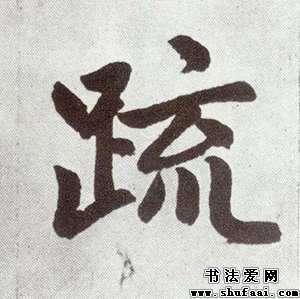 疏
书法爱网
www.shufaai.com